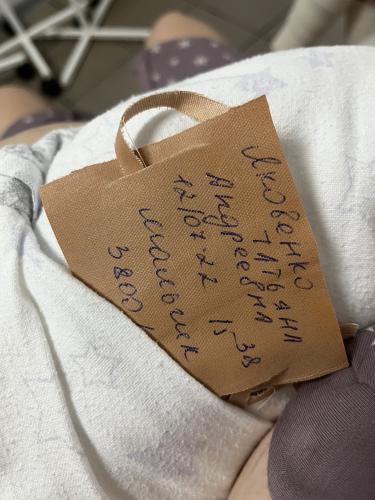 Яковенко
Татьяна
Андреевна
12/07 22 15-38
мальчик
3800/